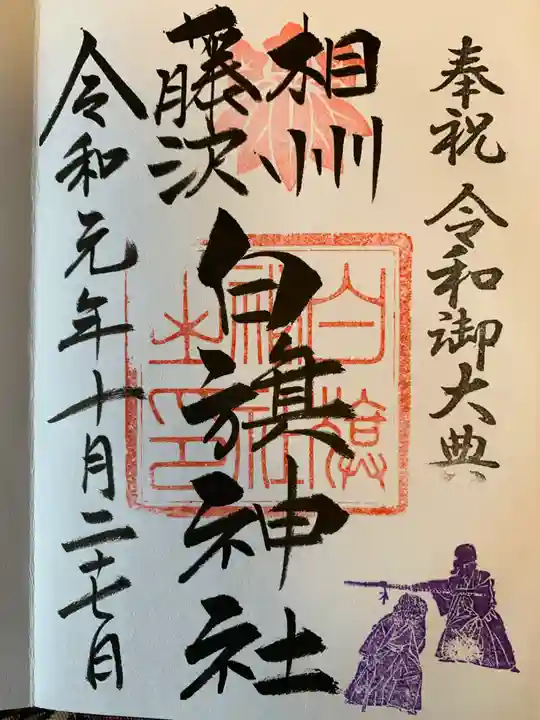 奉祝 令和御大典
相州
藤沢
白旗神社
白旗神社之印
令和元年十月二十七日